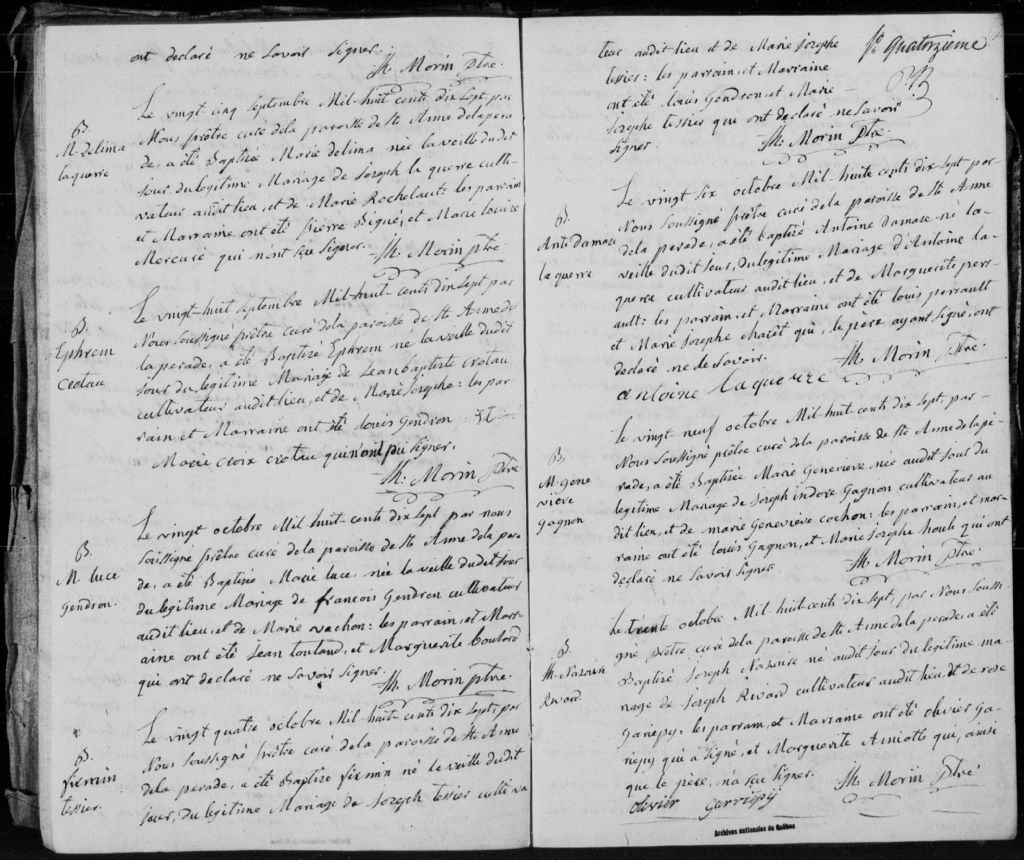 ont declaré ne Savoir Signer.
Th. Morin Ptre.
Le vingt cinq Septembre Mil-huit cents dix Sept, par
B.
M. delima
laquerre
Nous prêtre curé dela paroisse de Ste Anne delapera
de, a été Baptisé Marie delima, née la veille dudit
Jour, du legitime Mariage de Joseph la querre culti-
vateur audit lieu, et de Marie Rocheleau: les parrain
et Marraine ont été pierre Bigué, et Marie louise
Mercure qui n'ont sçu Signer.
Th. Morin ptre.
Le vingt-huit Septembre Mil-huit-cents dix Sept par
B.
Ephrem
Crotau
Nous Soussigné prêtre curé dela paroisse de Ste Anne de
la perade, a été Baptizé Ephrem né la veille dudit
Jour du legitime Mariage de Jean baptiste Crotau
cultivateur audit lieu, et de Marie Josephe: les par
rain et Marraine ont été louis Gendron et
Marie Croix Crotau qui n'ont pu Signer.
Th: Morin Ptre
Le vingt octobre Mil huit-cents dix Sept par nous
B.
M. luce
Gendron.
Soussigné prêtre curé dela paroisse de Ste Anne dela pera
de, a été Baptisée Marie luce, née la veille dudit Jour
du legitime Mariage de françois Gendron cultivateur
audit lieu, et de Marie vachon: les parrain et Marr-
aine ont été Jean et Marguerite
qui ont declaré ne Savoir Signer.
Th. Morin ptre.
Le vingt quatre octobre Mil-huit-cents dix Sept, par
B.
firmin
tessier.
Nous Soussigné prêtre curé dela paroisse de Ste Anne
dela perade, a été Baptisé firmin né la veille dudit
Jour, du legitime Mariage de Joseph tessier cultiva
teur audit lieu, et de Marie Josephe
tessier: les parrain et Marraine
fo. quatorzieme
ont été louis Gendron, et Marie
Josephe tessier qui ont déclaré ne Savoir
Signer.
Th: Morin Ptre
Le vingt six octobre Mil huite cents dix Sept par
B.
Ant: Damase
laquerre
Nous Soussigné prêtre curé dela paroisse de Ste Anne
dela perade, a été baptizé Antoine Damase né la-
veille dudit Jour, du legitime Mariage d'Antoine la-
querre cultivateur audit lieu, et de Marguerite perr-
ault: les parrain et Marraine ont été louis perrault
et Marie Josephe qui, le père ayant Signé, ont
declaré ne le Savoir.
Th. Morin Ptre.
antoine laquerre
Le vingt neuf octobre Mil-huit-cents dix Sept par-
B,
M: gene
viève
Gagnon
Nous Soussigné prêtre curé dela paroisse de Ste Anne delape
rade, a été Baptisée Marie Genevieve née audit Jour du
legitime Mariage de Joseph indore Gagnon cultivateur au
dit lieu, et de marie Genevieve cochon: les parrain, et mar-
raine ont été louis Gagnon, et Marie Josephe houle qui ont
declaré ne Savoir Signer.
Th. Morin Ptre.
Le trente octobre Mil huit-cents dix Sept, par Nous Soussi
B.
Jh. Nazaire
Rivard
gné prêtre curé dela paroisse de Ste Anne dela perade, a été
Baptisé Joseph Nazaire né audit Jour du legitime ma-
riage de Joseph Rivard cultivateur audit lieu, et de rose
Gariepy: les parrain, et Marraine ont été olivier Ga-
riepy qui a Signé, et Marguerite Amiotte qui, ainsi
que le père, n'a sçu Signer.
Th. Morin Ptre
olivier Garriépÿ
Archives nationales du Québec